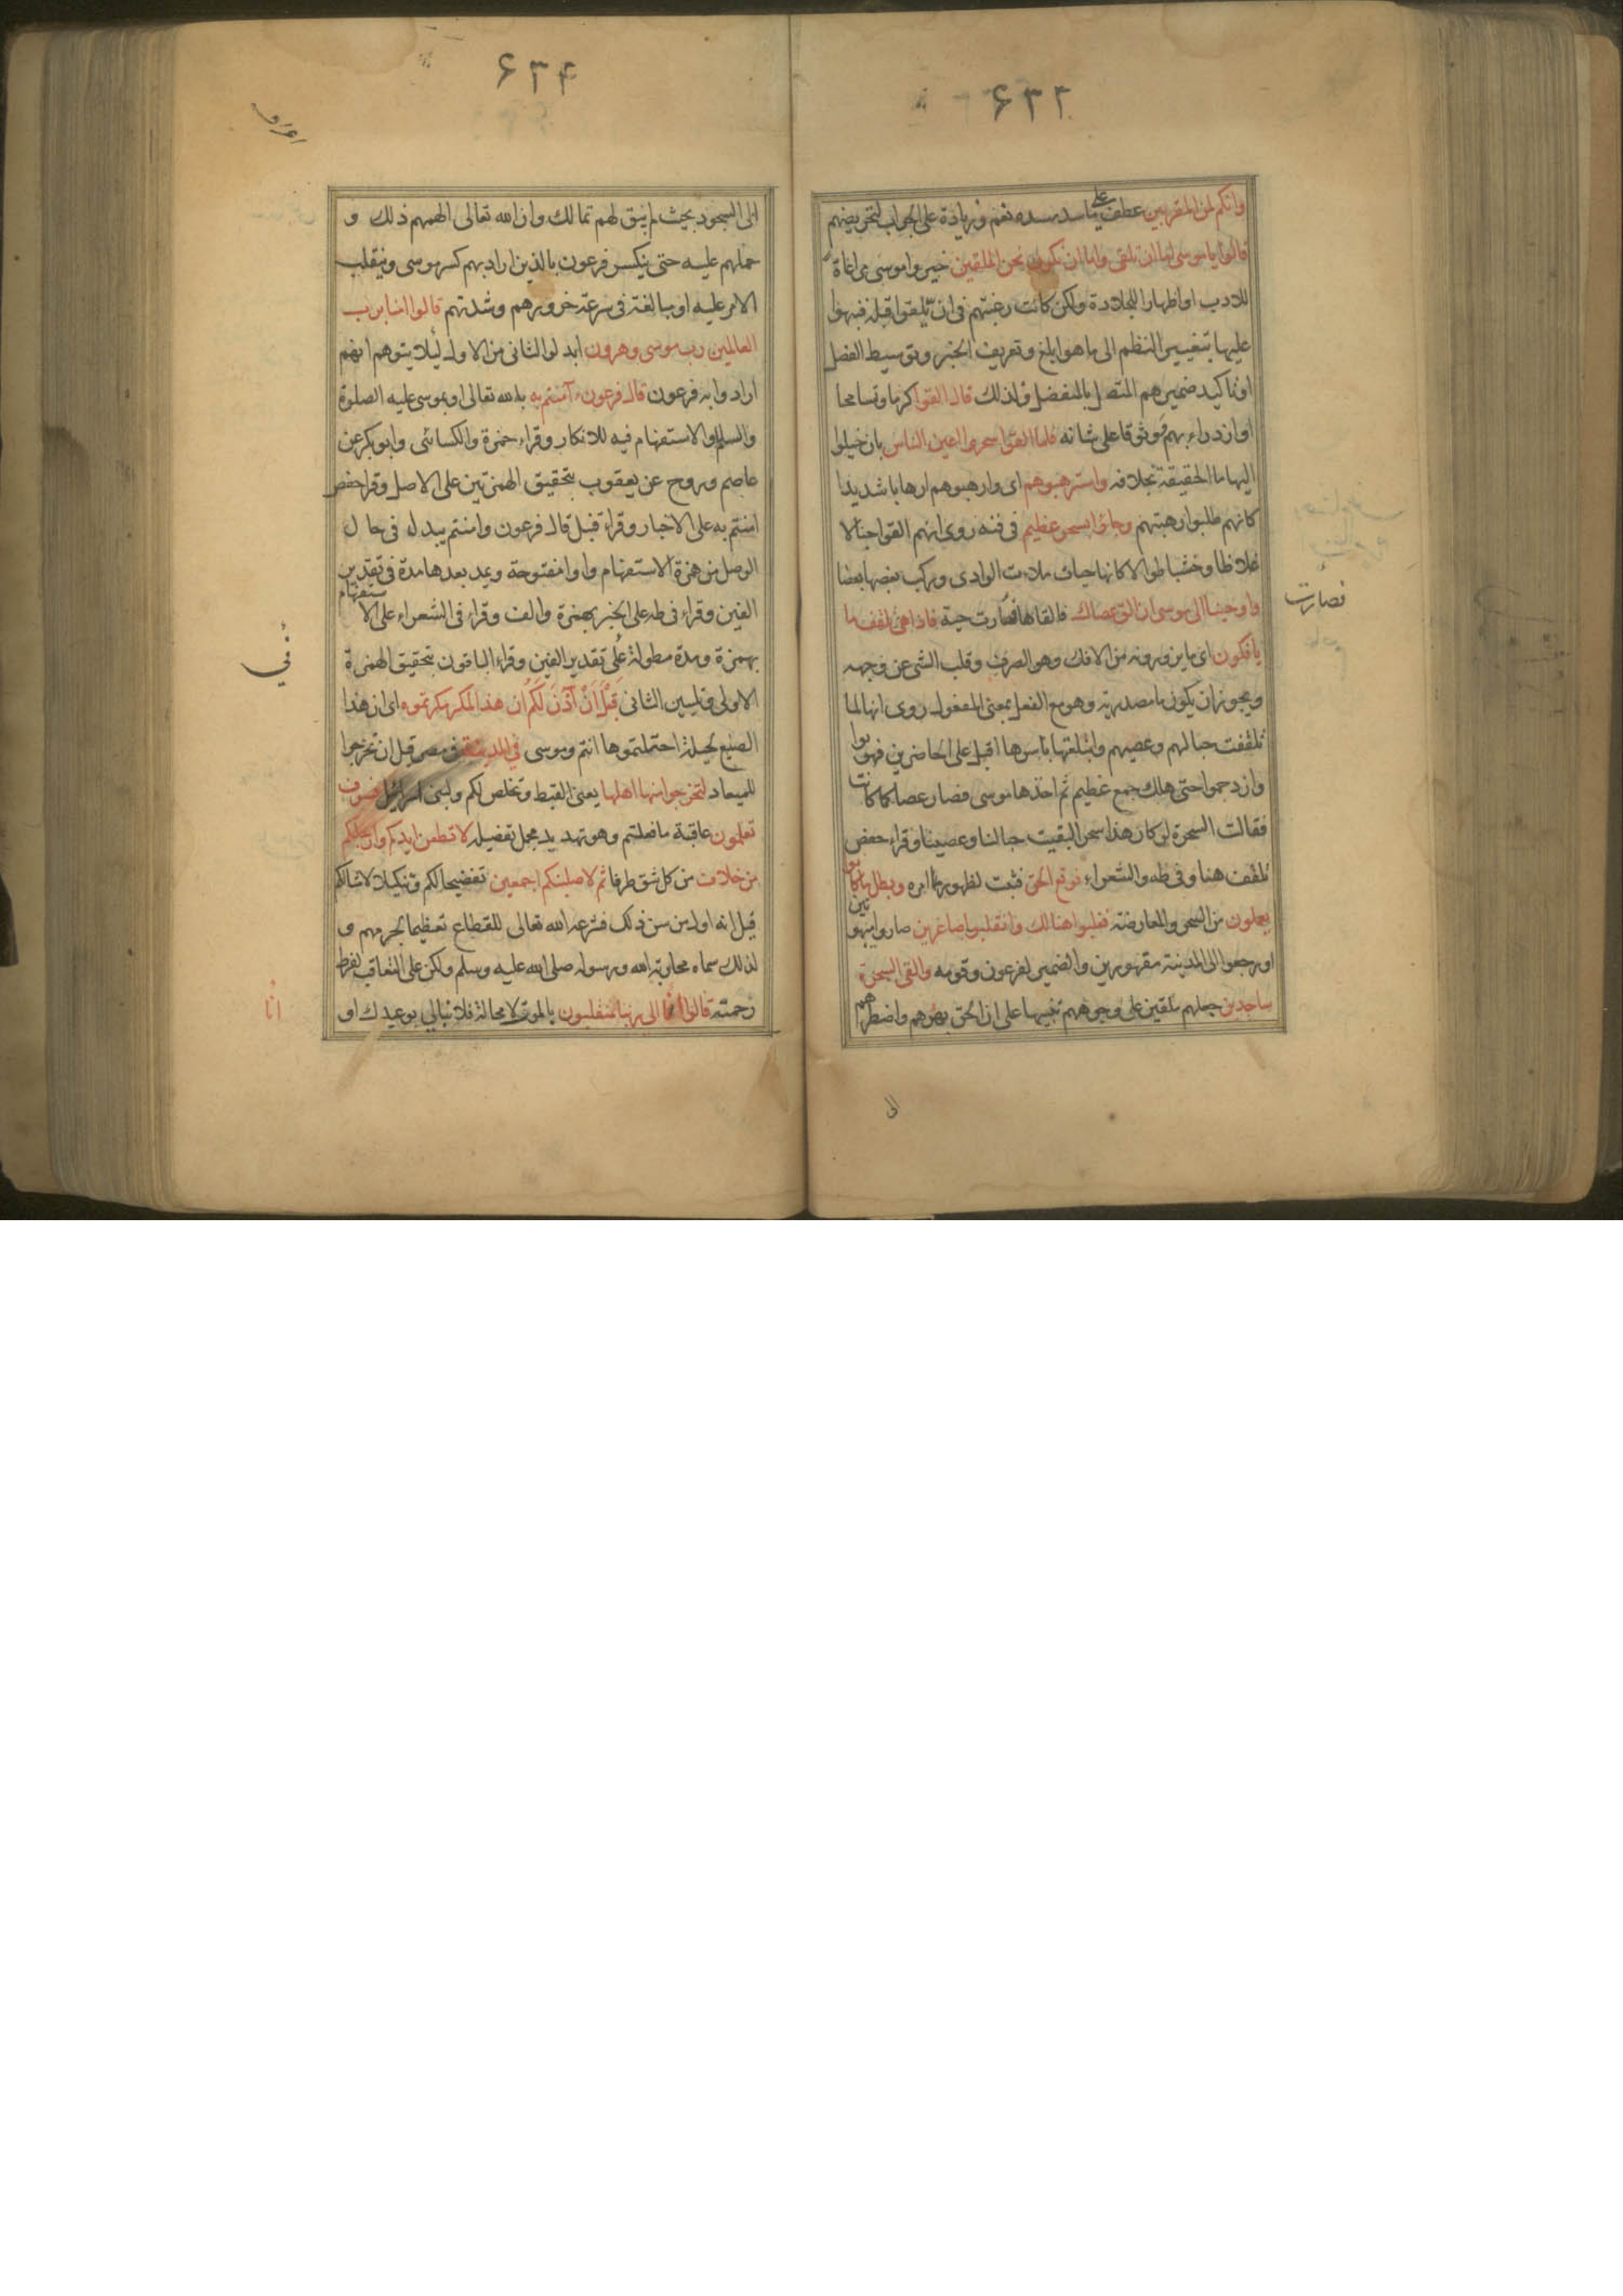 ۶۳۳
وانكم لمن المقربين عطف على ما سد مسده نعم وزيادة على الجواب لتحريضهم
قالوا يا موسى اما ان تلقى واما ان نكون نحن الملقين خيروا موسى مراعاة
للادب او اظهارا للجلادة ولكن كانت رغبتهم فى ان يلقوا قبله فنبهوا
عليها بتغيير النظم الى ما هو ابلغ وتعريف الخبر وتوسيط الفصل
او تاكيد ضميرهم المتصل بالمنفصل ولذلك قال القوا كرما وتسامحا
او ازدراء بهم ووثوقا على شانه فلما القوا سحروا اعين الناس بان خيلوا
اليها ما الحقيقة بخلافه واسترهبوهم اى وارهبوهم ارهابا شديدا
كانهم طلبوا رهبتهم وجاؤا بسحر عظيم فى فنه روى انهم القوا حبالا
غلاظا وخشبا طوالا كانها حيات ملات الوادى وركب بعضها بعضا
واوحينا الى موسى ان الق عصاك فالقاها فصارت حية فاذا هى تلقف ما
فصارت
يافكون اى ما يزورونه من الافك وهو الصرف وقلب الشى عن وجهه
ويجوز ان يكون ما مصدرية وهو مع الفعل بمعنى المفعول روى انها لما
تلقفت حبالهم وعصيهم وابتلعتها باسرها اقبل على الحاضرين فهربوا
وازدحموا حتى هلك جمع عظيم ثم اخذها موسى فصار عصا كما كانت
فقالت السحرة لو كان هذا سحرا لبقيت حبالنا وعصينا وقراء حفص
تلقف هنا وفى طه والشعراء فوقع الحق فثبت لظهور امره وبطل ما كانوا
يعملون من السحر والمعارضة فغلبوا هنالك وانقلبوا صاغرين صاروا مبهوتين
او رجعوا الى المدينة مقهورين والضمير لفرعون وقومه والقى السحرة
ساجدين جعلهم ملقين على وجوههم تنبيها على ان الحق بهرهم واضطرهم
الى
۶۳۴
اعراف
الى السجود بحيث لم يبق لهم تمالك وان الله تعالى الهمهم ذلك و
حملهم عليه حتى ينكسر فرعون بالذين اراد بهم كسر موسى وينقلب
الامر عليه او مبالغة فى سرعة خرورهم وشدتهم قالوا امنا برب
العالمين رب موسى وهرون ابدلوا الثانى من الاول ليلا يتوهم انهم
ارادوا به فرعون قال فرعون ءآمنتم به بالله تعالى او بموسى عليه الصلوة
والسلام والاستفهام فيه للانكار وقراء حمزة والكسائى وابو بكر عن
عاصم وروح عن يعقوب بتحقيق الهمزتين على الاصل وقرا حفص
امنتم به على الاخبار وقراء قنبل قال فرعون وامنتم يبدل فى حال
الوصل من همزة الاستفهام واوا مفتوحة ويمد بعدها مدة فى تقدير
الفين وقراء فى طه على الخبر بهمزة والف وقراء فى الشعراء على الاستفهام
بهمزة ومدة مطولة على تقدير الفين وقراء الباقون بتحقيق الهمزة
فى
الاولى وتليين الثانى قَبْلَ اَنْ آذَنَ لَكُمْ ان هذا لمكر مكرتموه اى ان هذا
الصنيع لحيلة احتملتموها انتم وموسى فى المدينة فى مصر قبل ان تخرجوا
للميعاد لتخرجوا منها اهلها يعنى القبط وتخلص لكم ولبنى اسرائيل فسوف
تعلمون عاقبة ما فعلتم وهو تهديد مجمل تفصيله لاقطعن ايديكم وارجلكم
من خلاف من كل شق طرفا ثم لاصلبنكم اجمعين تفضيحا لكم وتنكيلا لامثالكم
قيل انه اول من سن ذلك فشرعه الله تعالى للقطاع تعظيما لجرمهم و
لذلك سماه محاربة الله ورسوله صلى الله عليه وسلم ولكن على التعاقب لفرط
رحمته قالوا انا الى ربنا لمنقلبون بالموت لا محالة فلا نبالى بوعيدك او
انا